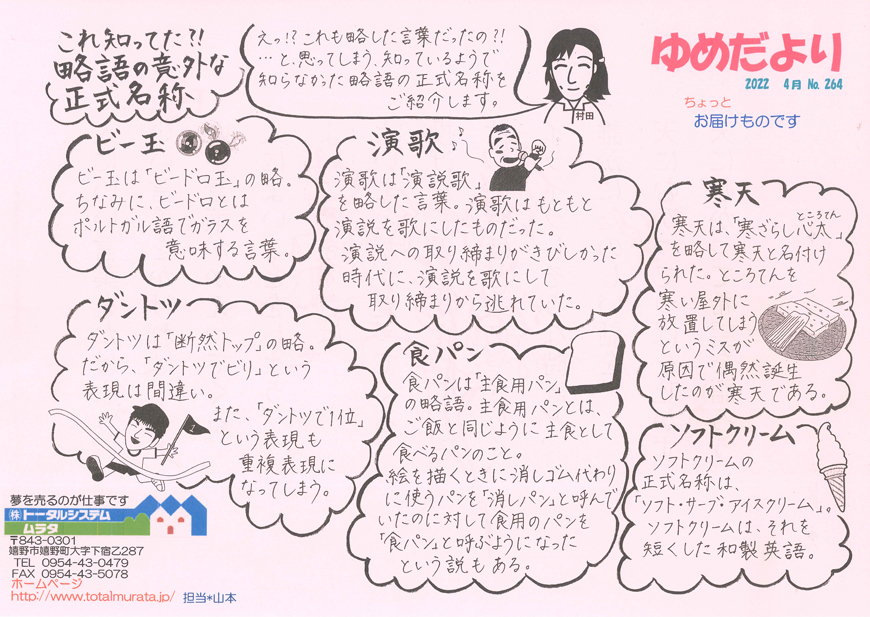 これ知ってた?!
略語の意外な
正式名称
えっ!?これも略した言葉だったの?!
…と、思ってしまう、知っているようで
知らなかった略語の正式名称を
ご紹介します。
村田
ゆめだより
2022 4月 No. 264
ちょっと
お届けものです
ビー玉
ビー玉は「ビードロ玉」の略。
ちなみに、ビードロとは
ポルトガル語でガラスを
意味する言葉。
演歌
演歌は「演説歌」
を略した言葉。演歌はもともと
演説を歌にしたものだった。
演説への取り締まりがきびしかった
時代に、演説を歌にして
取り締まりから逃れていた。
寒天
寒天は、「寒ざらし心太」
ところてん
を略して寒天と名付け
られた。ところてんを
寒い屋外に
放置してしまう
というミスが
原因で偶然誕生
したのが寒天である。
ダントツ
ダントツは「断然トップ」の略。
だから、「ダントツでビリ」という
表現は間違い。
また、「ダントツで1位」
という表現も
重複表現に
なってしまう。
1
食パン
食パンは「主食用パン」
の略語。主食用パンとは、
ご飯と同じように主食として
食べるパンのこと。
絵を描くときに消しゴム代わり
に使うパンを「消しパン」と呼んで
いたのに対して食用のパンを
「食パン」と呼ぶようになった
という説もある。
ソフトクリーム
ソフトクリームの
正式名称は、
「ソフト・サーブ・アイスクリーム」。
ソフトクリームは、それを
短くした和製英語。
夢を売るのが仕事です
(株)トータルシステム
ムラタ
〒843-0301
嬉野市嬉野町大字下宿乙287
TEL 0954-43-0479
FAX 0954-43-5078
ホームページ
http://www.totalmurata.jp/ 担当*山本